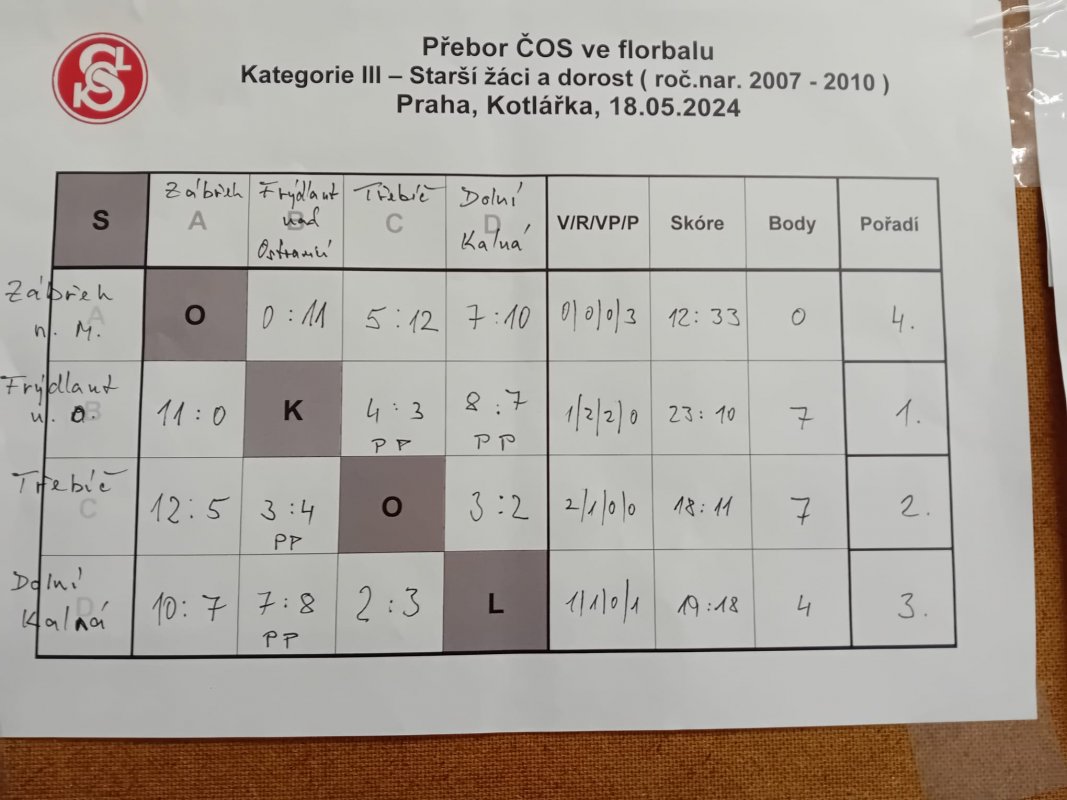 Přebor ČOS ve florbalu
Kategorie III – Starší žáci a dorost ( roč.nar. 2007 - 2010 )
Praha, Kotlářka, 18.05.2024
S Zábřeh A Frýdlant nad Ostravicí B Třebíč C Dolní Kalná D V/R/VP/P Skóre Body Pořadí
Zábřeh n. M. A O 0 : 11 5 : 12 7 : 10 0/0/0/3 12 : 33 0 4.
Frýdlant n. O. B 11 : 0 K 4 : 3 PP 8 : 7 PP 1/2/2/0 23 : 10 7 1.
Třebíč C 12 : 5 3 : 4 PP O 3 : 2 2/1/0/0 18 : 11 7 2.
Dolní Kalná D 10 : 7 7 : 8 PP 2 : 3 L 1/1/0/1 19 : 18 4 3.